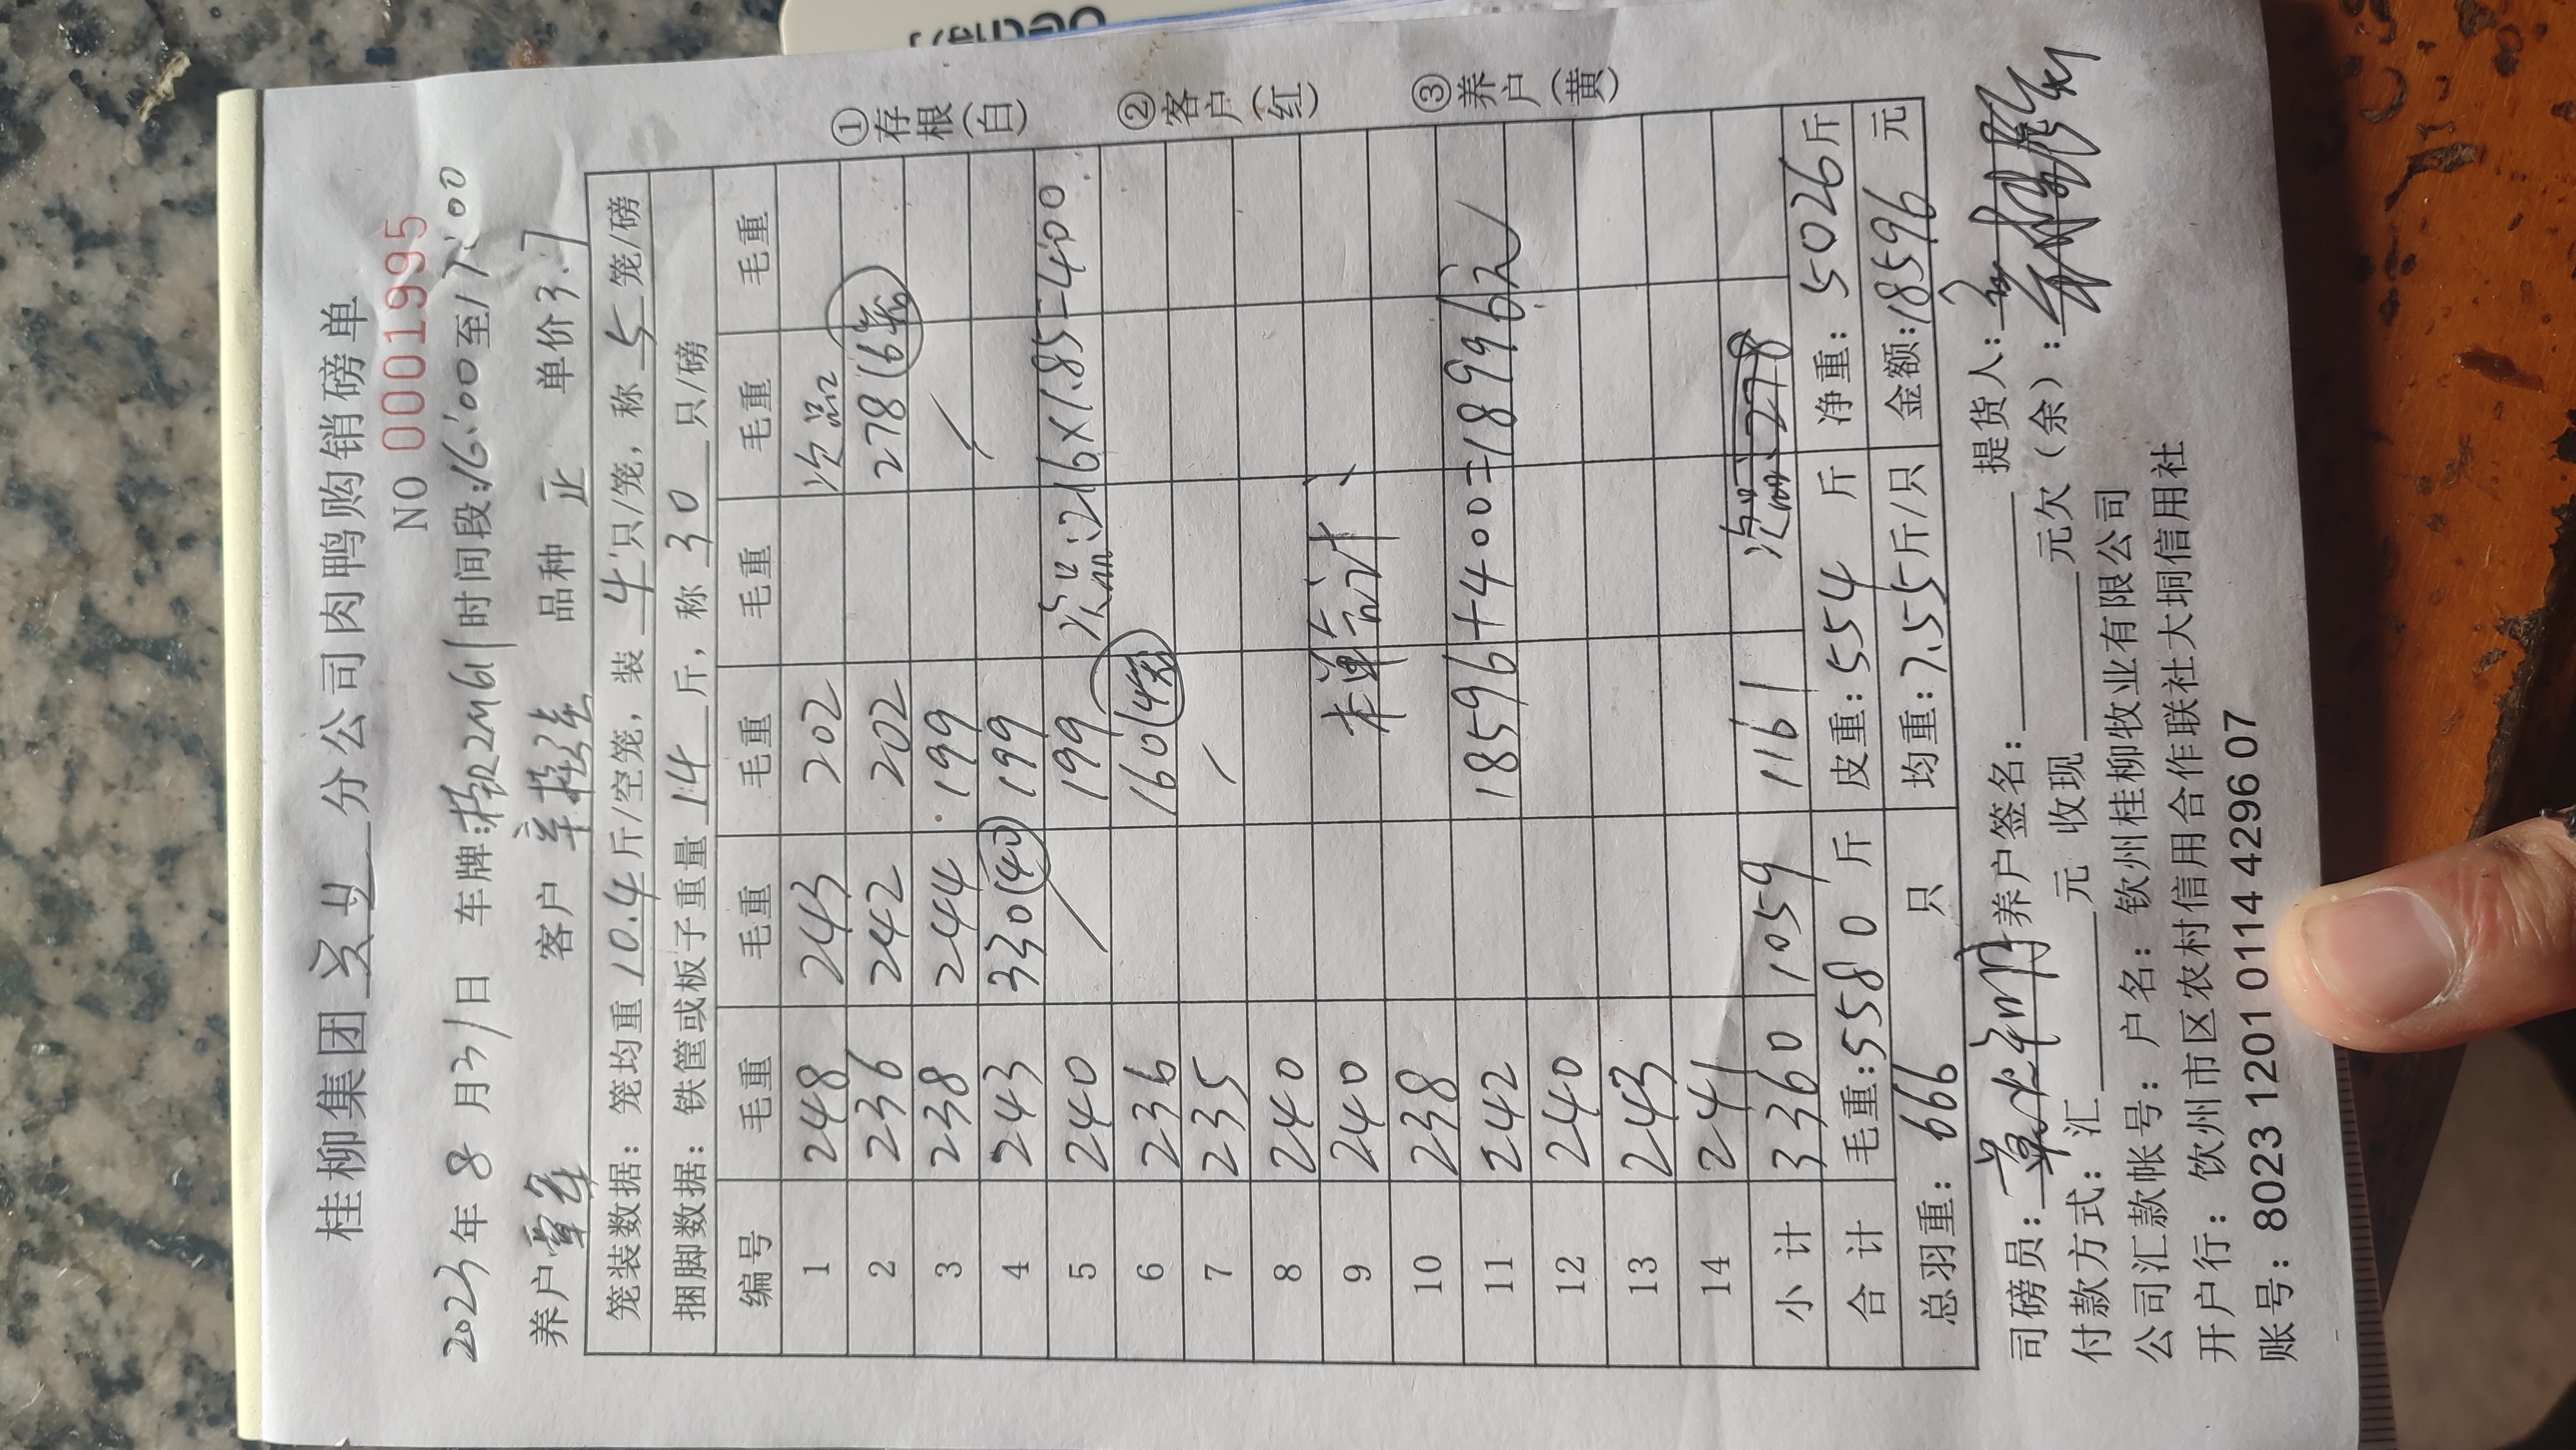 桂柳集团 分公司肉鸭购销磅单
NO 0001995
2023年8月31日 车牌: 2M61 时间段:16:00至17:00
养户 客户 品种 正 单价3.7
笼装数据: 笼均重10.4斤/空笼, 装4只/笼, 称5笼/磅
捆脚数据: 铁筐或板子重量14斤, 称30只/磅
编号 毛重 毛重 毛重 毛重 毛重 毛重
1 248 243 202 次品
2 236 242 202 278(16
3 238 244 199
4 243 330(40) 199
5 240 199 次品:216×1.85=400
6 236 160(4
7 235
8 240
9 240 本单合计
10 238
11 242 18596+400=18996元
12 240
13 243
14 241
小计 3360 1059 1161 次品:278
合计 毛重:5580斤 皮重:554斤 净重:5026斤
总羽重:666只 均重:7.55斤/只 金额:18596元
司磅员: 养户签名: 提货人:
付款方式:汇 元 收现 元欠(余):
公司汇款帐号: 户名: 钦州桂柳牧业有限公司
开户行: 饮州市区农村信用合作联社大垌信用社
账号: 8023 1201 0114 4296 07
①存根(白)
②客户(红)
③养户(黄)